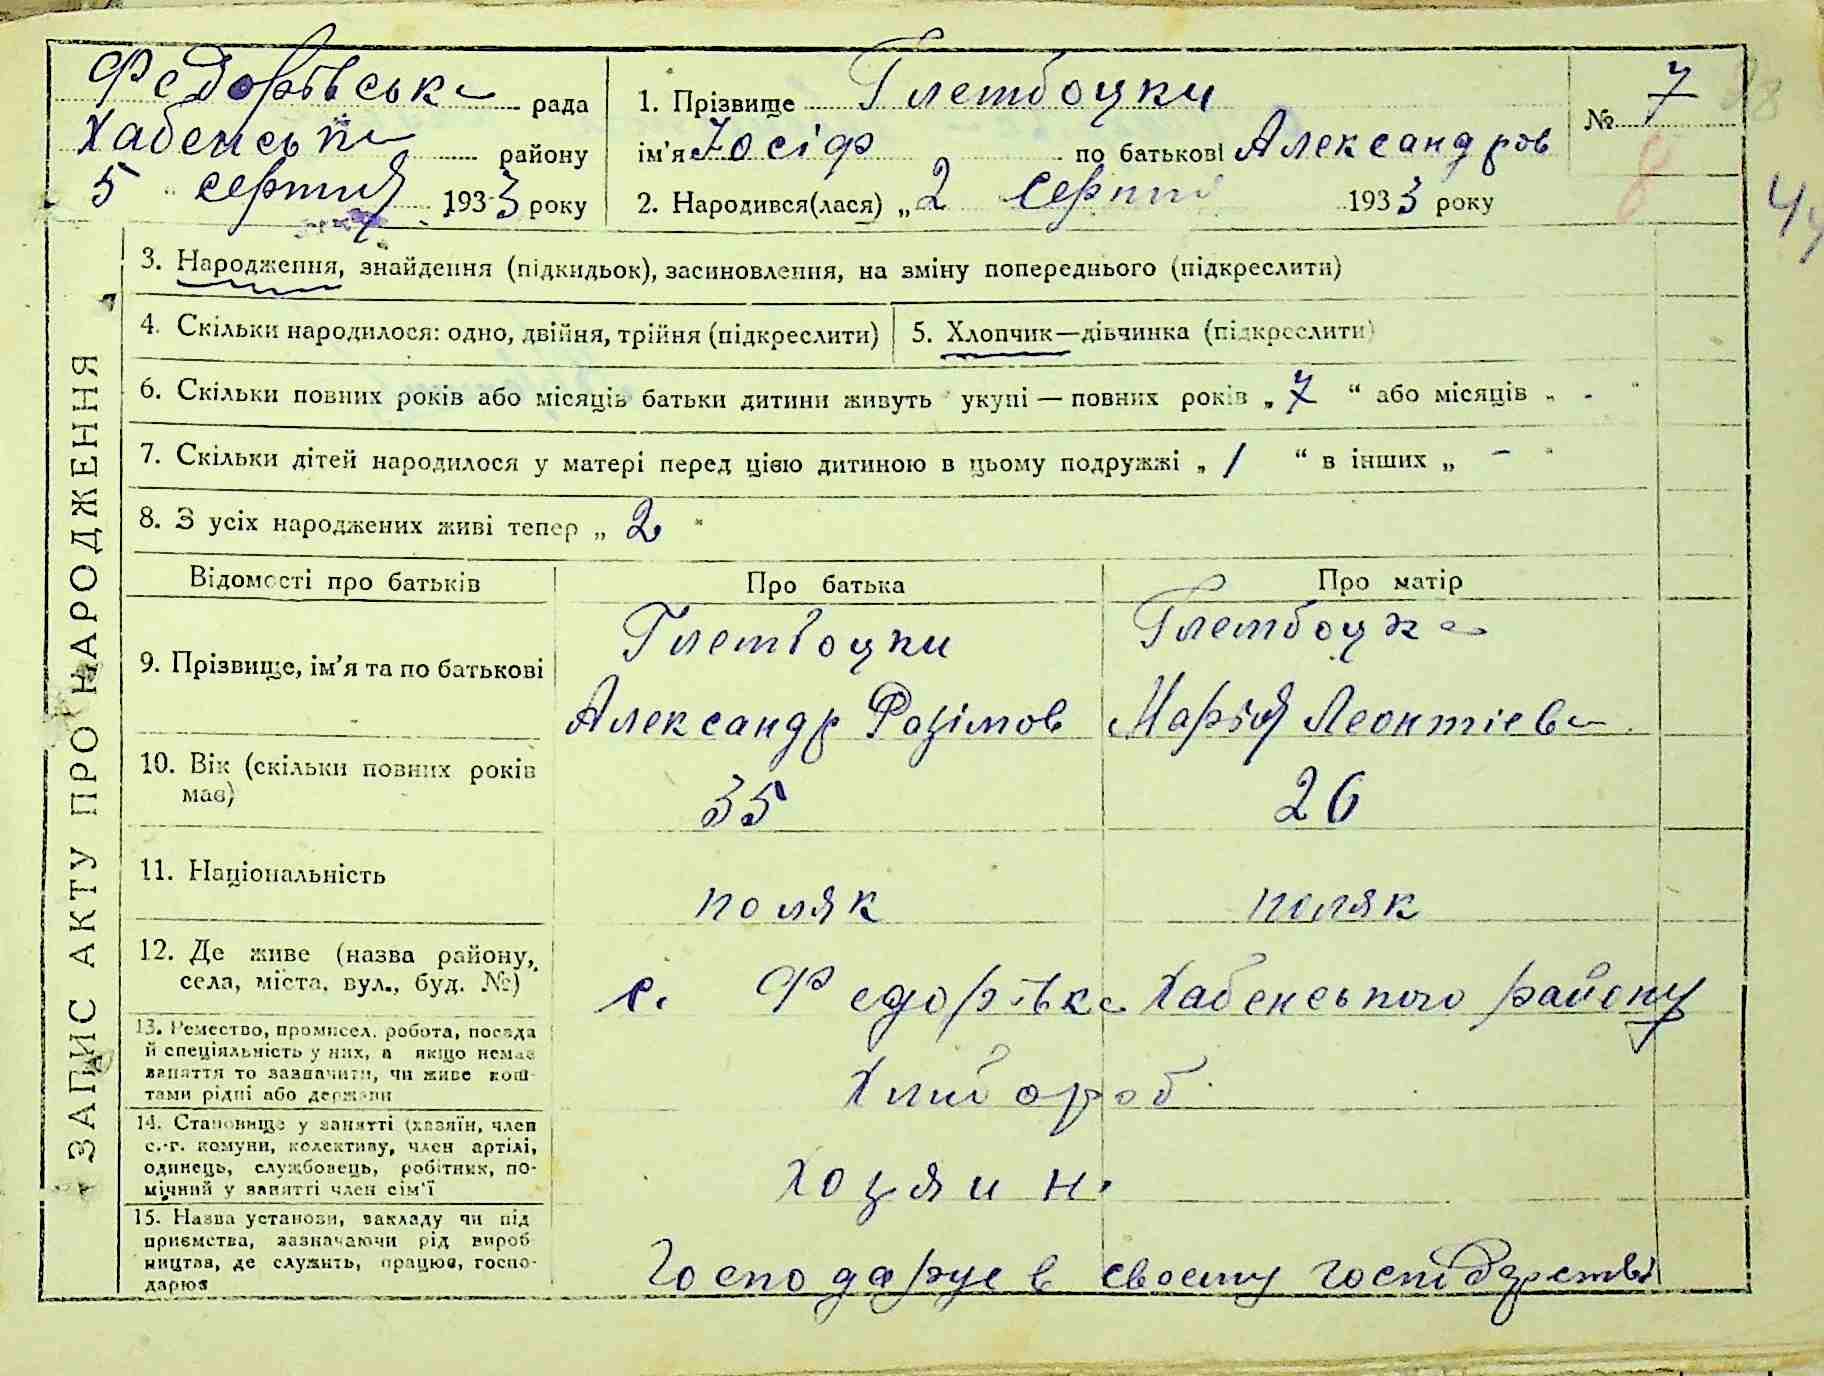 Федорівська рада
Хабенськ району
5 серпня 1933 року
1. Прізвище Глембоцки
ім'я Юсіф по батькові Александров
2. Народився(лася) „2 серпня 1933 року
№ 7
8
44
ЗАПИС АКТУ ПРО НАРОДЖЕННЯ
3. Народження, знайдення (підкидьок), засиновлення, на зміну попереднього (підкреслити)
4. Скільки народилося: одно, двійня, трійня (підкреслити)
5. Хлопчик—дівчинка (підкреслити)
6. Скільки повних років або місяців батьки дитини живуть укупі — повних років „ 7 “ або місяців „ - “
7. Скільки дітей народилося у матері перед цією дитиною в цьому подружжі „ 1 “ в інших „ - “
8. З усіх народжених живі тепер „ 2 “
Відомості про батьків
Про батька
Про матір
9. Прізвище, ім'я та по батькові
Глембоцки
Александр Розімов
Глембоцка
Марія Леонтієва
10. Вік (скільки повних років
має)
35
26
11. Національність
поляк
поляк
12. Де живе (назва району,
села, міста, вул., буд. №)
с. Федорівка Хабенського району
13. Ремество, промисел, робота, посада
й спеціяльність у них, а якщо немає
заняття то зазначити, чи живе кош-
тами рідні або держави
Хлибороб
14. Становище у занятті (хазяїн, член
с.-г. комуни, колективу, член артілі,
одинець, службовець, робітник, по-
мічний у занятті член сім'ї
Хозяин.
15. Назва установи, закладу чи під
приємства, зазначаючи рід вироб
ництва, де служить, працює, госпо-
дарює
Господарує в своему госпідарстві